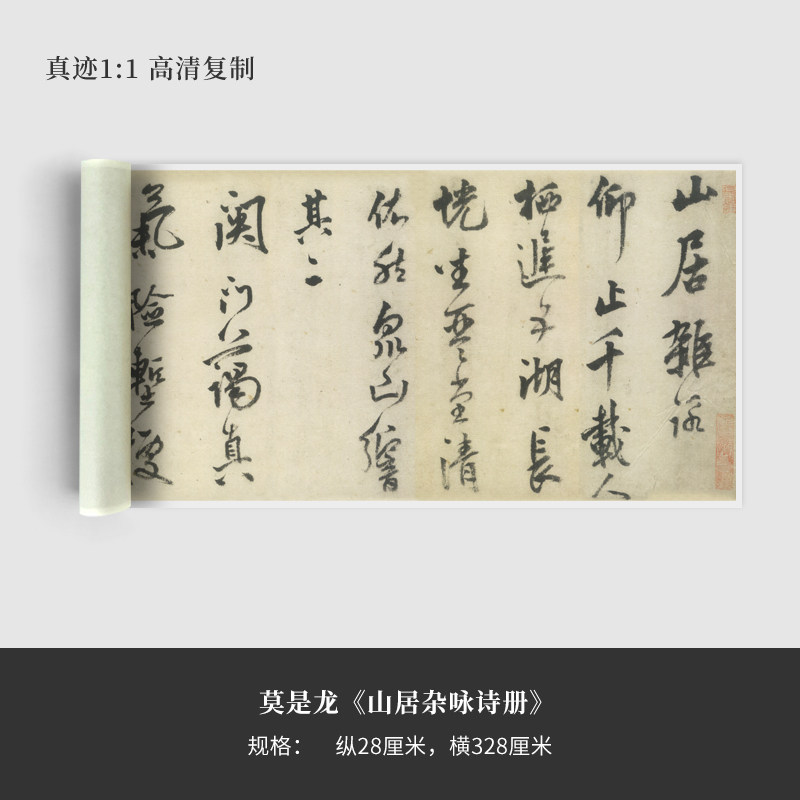 真迹1:1 高清复制
山居雜詠
仰止千載人
栖遲 湖長
恍坐琴堂清
依然泉山響
其二
關門藹真
氣險塹
莫是龙《山居杂咏诗册》
规格： 纵28厘米，横328厘米